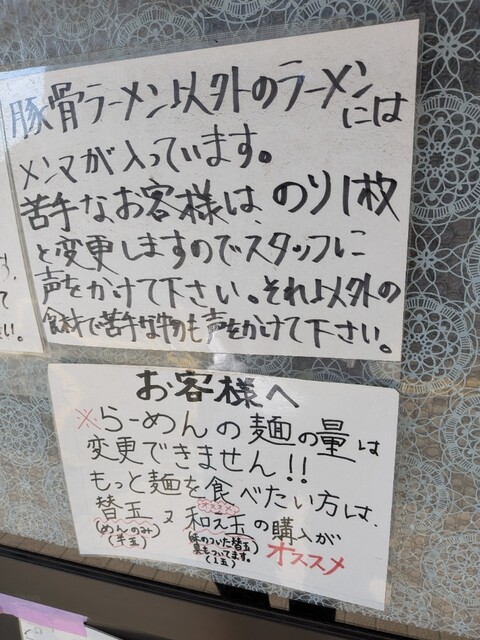 豚骨ラーメン以外のラーメン
には
メンマが入っています。
苦手なお客様は、のり1枚
と変更しますのでスタッフに
声をかけて下さい。それ以外の
食材で苦手な物も声をかけて下さい。
お客様へ
※らーめんの麺の量は
変更できません!!
もっと麺を食べたい方は、
オススメ
替玉 又 和え玉の購入が
(めんのみ)
(半玉)
(味のついた替玉
具もついてます。
(1玉)
オススメ